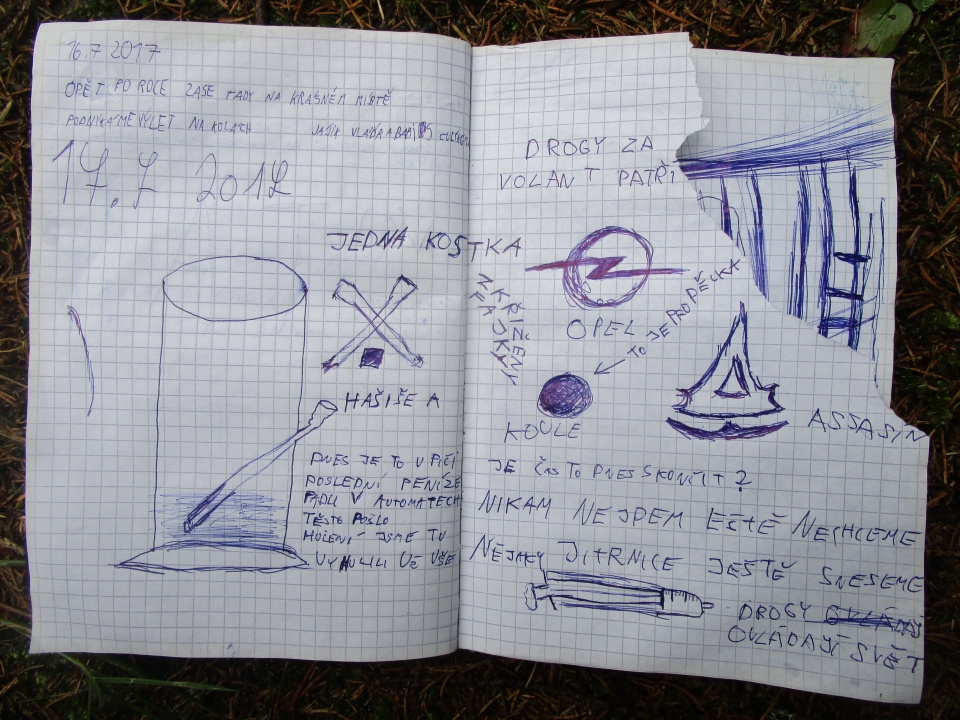 16.7 2017
OPĚT PO ROCE ZASE TADY NA KRÁSNÉM MÍSTĚ
PODNIKÁME VÝLET NA KOLACH VLAĎA A
17.7 2012
JEDNA KOSTKA
HAŠIŠE A
DNES JE TO V PIČI
POSLEDNÍ PENÍZE
PADLI V AUTOMATECH
TĚSTO POŠLO
HOLENÍ JSME TU
UŽ VŠE
DROGY ZA
VOLANT PATŘÍ
NĚJAKÝ
KŘIŽENY
OPEL
TO JE PRO PÉČKA
KOULE
ASSASIN
JE ČAS TO DNES SKONČIT?
NIKAM NEJDEM EŠTĚ NECHCEME
NĚJAKY JITRNICE JEŠTĚ SNESEME
DROGY
OVLÁDAJÍ SVĚT